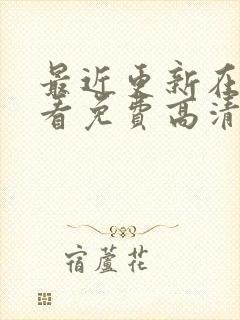 最近更新在
看免费高清
宿蘆花